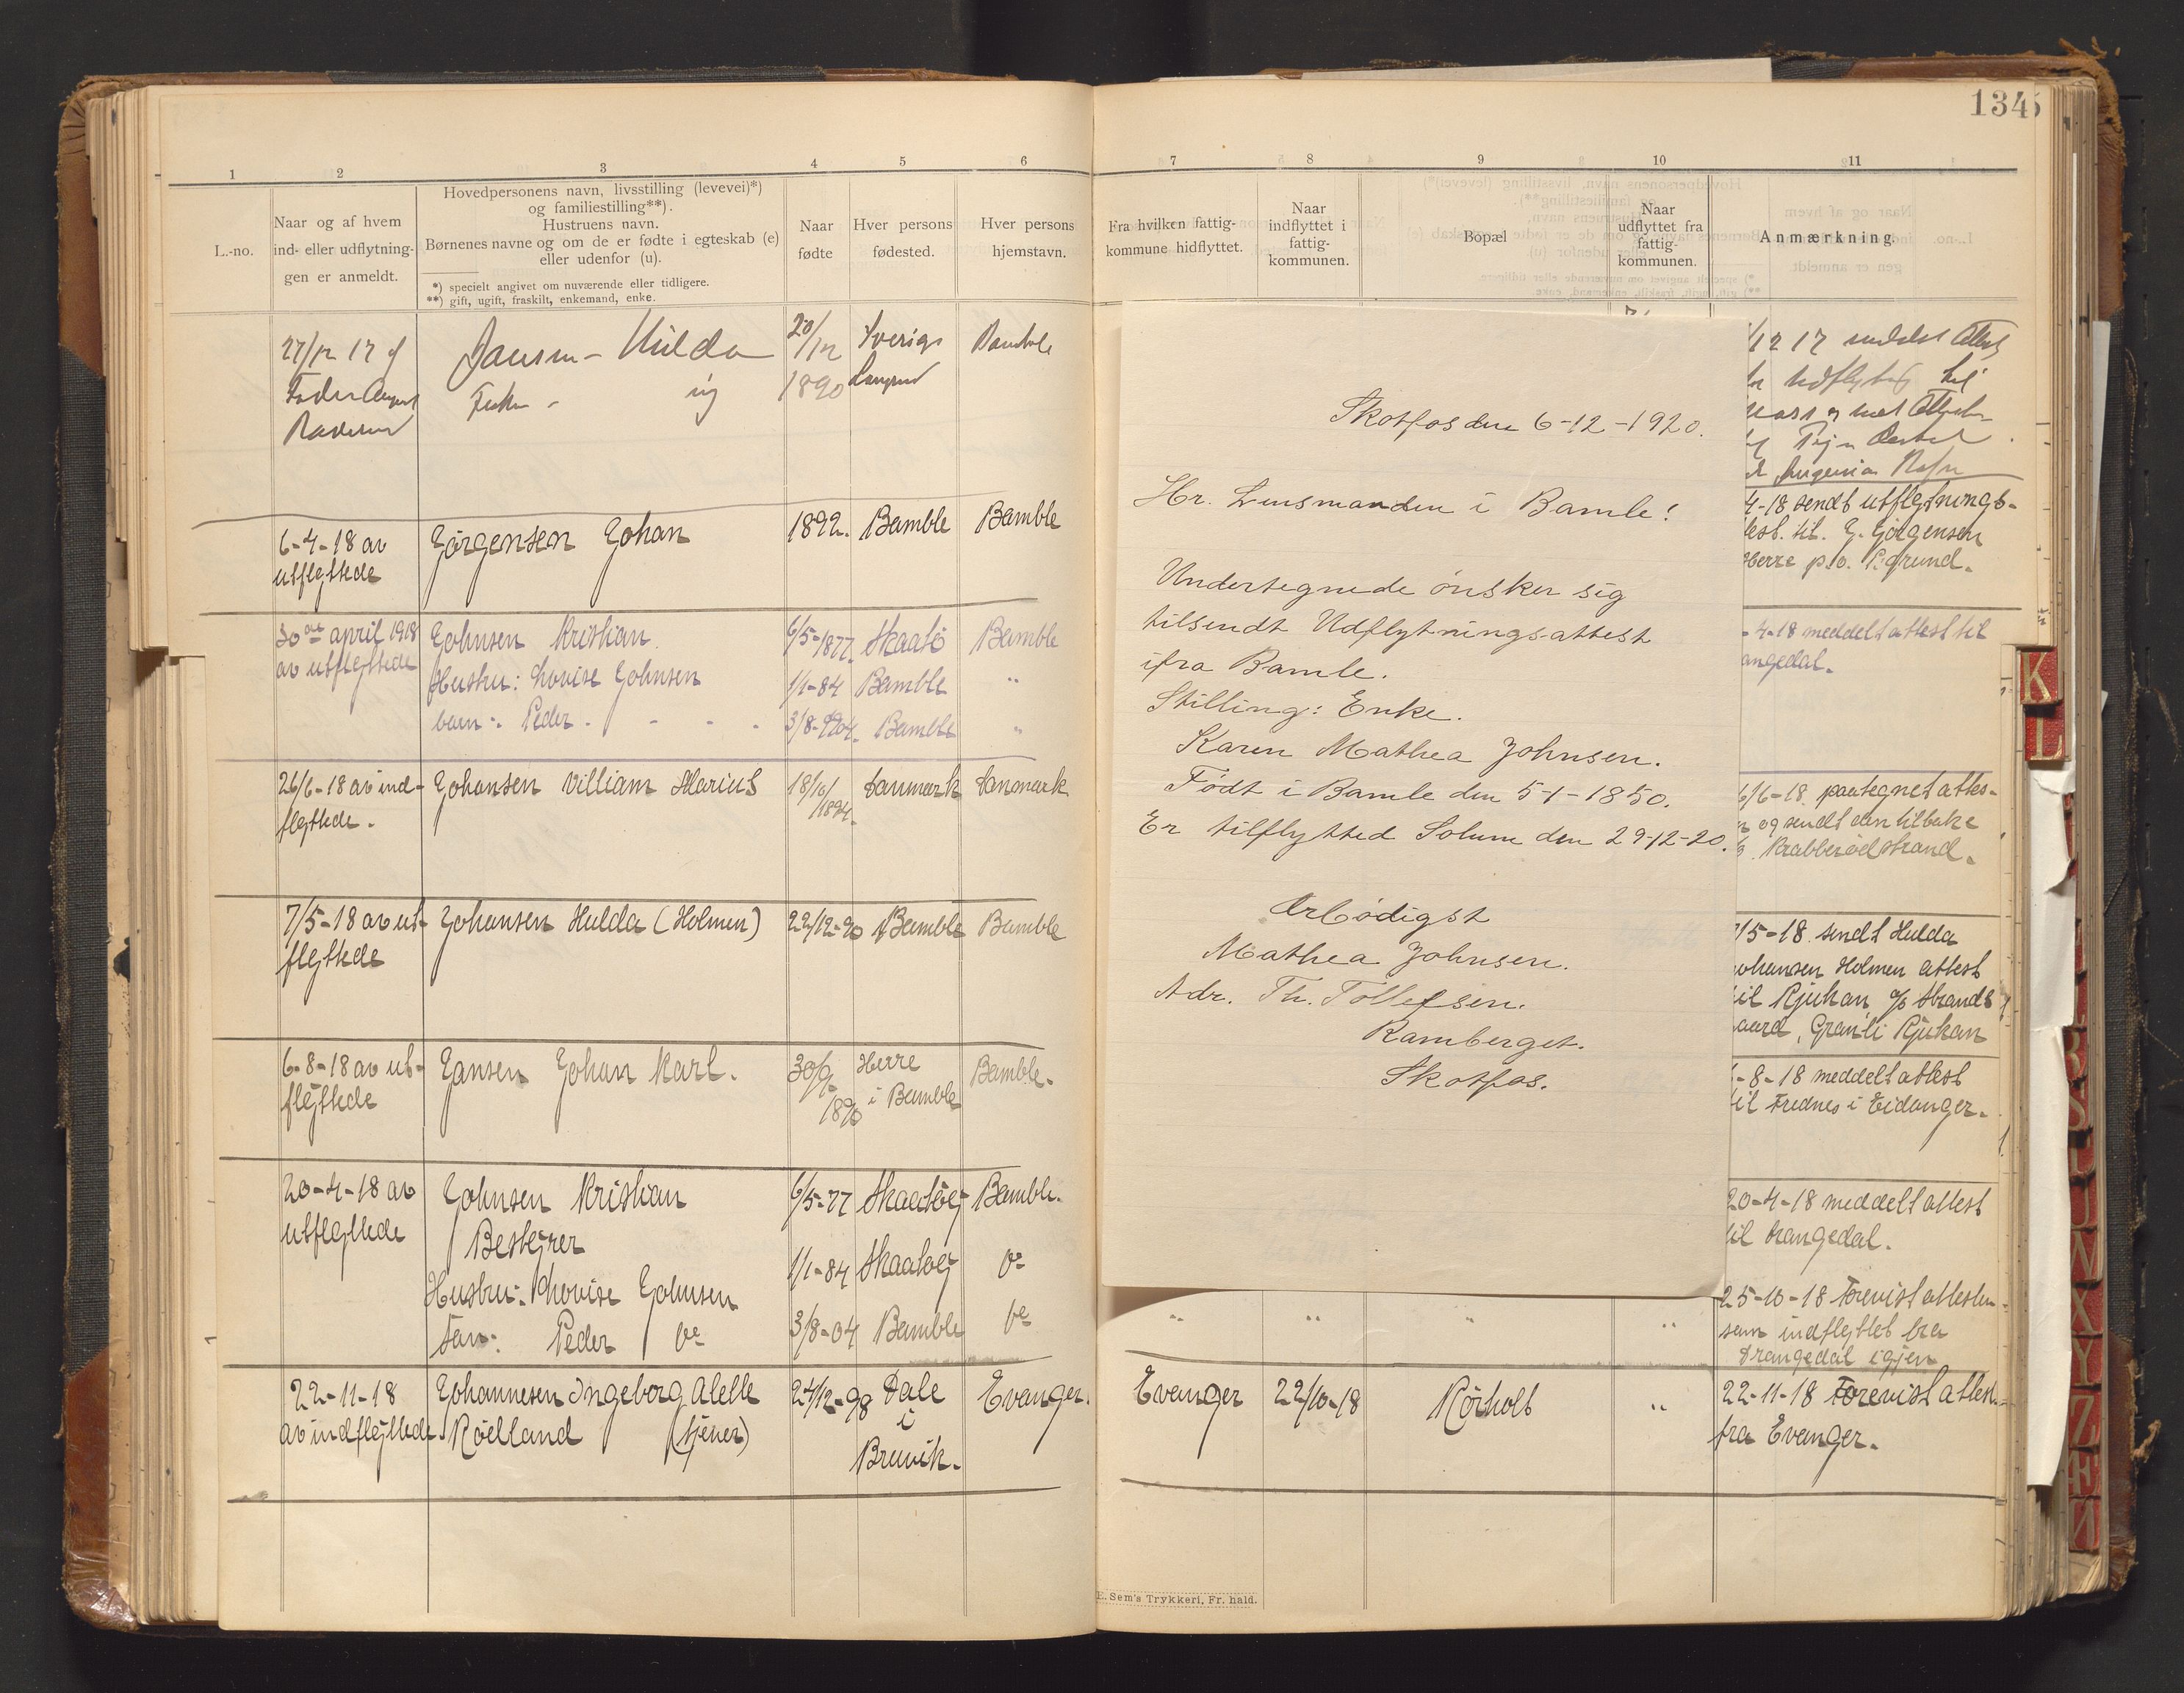 134
1 2 3 4 5 6
L.-no.
Naar og af hvem
ind- eller udflytnin-
gen er anmeldt.
Hovedpersonens navn, livsstilling (levevei)*)
og familiestilling**).
Hustruens navn.
Børnenes navne og om de er fødte i egteskab (e)
eller udenfor (u).
*) specielt angivet om nuværende eller tidligere.
**) gift, ugift, fraskilt, enkemand, enke.
Naar
fødte
Hver persons
fødested.
Hver persons
hjemstavn.
27/12 17 af
Jansen - Hilda
20/12
1890
Sverige
Bamble
ug
6-4-18 av
utflyttede
Jørgensen Johan
1892.
Bamble
Bamble
30te april 1918
av utflyttede
Johnsen Kristian
6/5-1877.
Skaatø
Bamble
Hustru: Lovise Johnsen
1/1-84
Bamble
"
barn: Peder - - -
3/8-1904.
Bamble
"
26/6-18 av ind-
flyttede.
Johansen Villiam Marius
18/10/1894.
Danmark
Danmark
7/5-18 av ut-
flyttede
Johansen Hulda (Holmen)
22/12-90
Bamble
Bamble
6-8-18 av ut-
flyttede
Jansen Johan Karl.
30/9
1890
Herre
i Bamble
Bamble.
20-4-18 av
utflyttede
Johnsen Kristian
Bestyrer
6/5-77
Skaatøy
Bamble.
Hustru: Lovise Johnsen
1/1-84
Skaatøy
do
Søn: Peder do
3/8-04
Bamble
do
22-11-18
av indflyttede
Johannesen Ingeborg Alette
Røelland (tjener)
24/12-98
Dale
i
Bruvik.
Evanger.
7 8 9 10 11
Fra hvilken fattig-
kommune hidflyttet.
Naar
indflyttet i
fattig-
kommunen.
Bopæl
Naar
udflyttet fra
fattig-
kommunen.
Anmærkning.
Skotfos den 6-12-1920.
Hr. Lensmanden i Bamle!
Undertegnede ønsker sig
tilsendt Udflytningsattest
ifra Bamle.
Stilling: Enke.
Karen Mathea Johnsen.
Født i Bamle den 5-1-1850.
Er tilflytted Solum den 29-12-20.
Ærbødigst
Mathea Johnsen.
Adr. Th. Tollefsen.
Ramberget.
Skotfos.
/12 17 meddelt Attest
udflytning til
4-18 sendt utflytnings-
test. til. J. Jørgensen
Herre p.o. P.grund.
-4-18 meddelt attest til
angedal.
6/6-18. paategnet attes-
n og sendt den tilbake
Krabberødstrand.
7/5-18 sendt Hulda
ohansen Holmen attest
til Rjukan, c/o Strands
gaard, Granli Rjukan
-8-18 meddelt attest
til Frednes i Eidanger.
20-4-18 meddelt attest
til Drangedal.
" " " "
25-10-18 Forevist attesten
som indflyttet fra
Drangedal igjen
Evanger
22/10-18
Rørholt
"
22-11-18 Forevist attest
fra Evanger.
E. Sem's Trykkeri, Fr. hald.
K
L